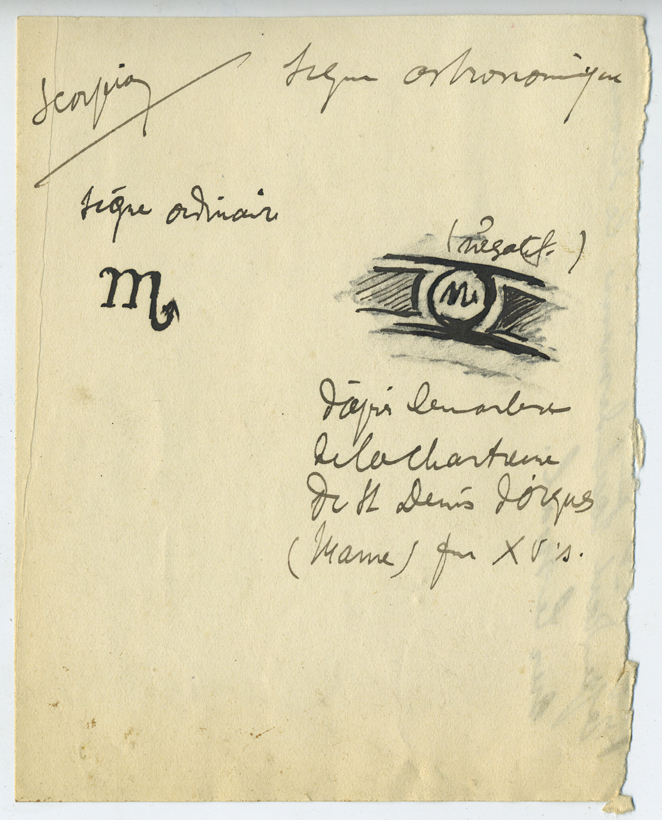 Scorpion
Signe astronomique
signe ordinaire
(négatif.)
d'après
de la Chartreuse
de St Denis d'Orques
(Marne) fin XVe s.